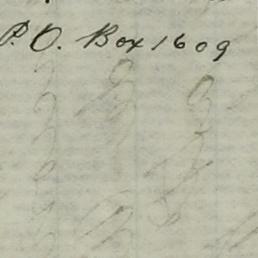 P.O. Box 1609